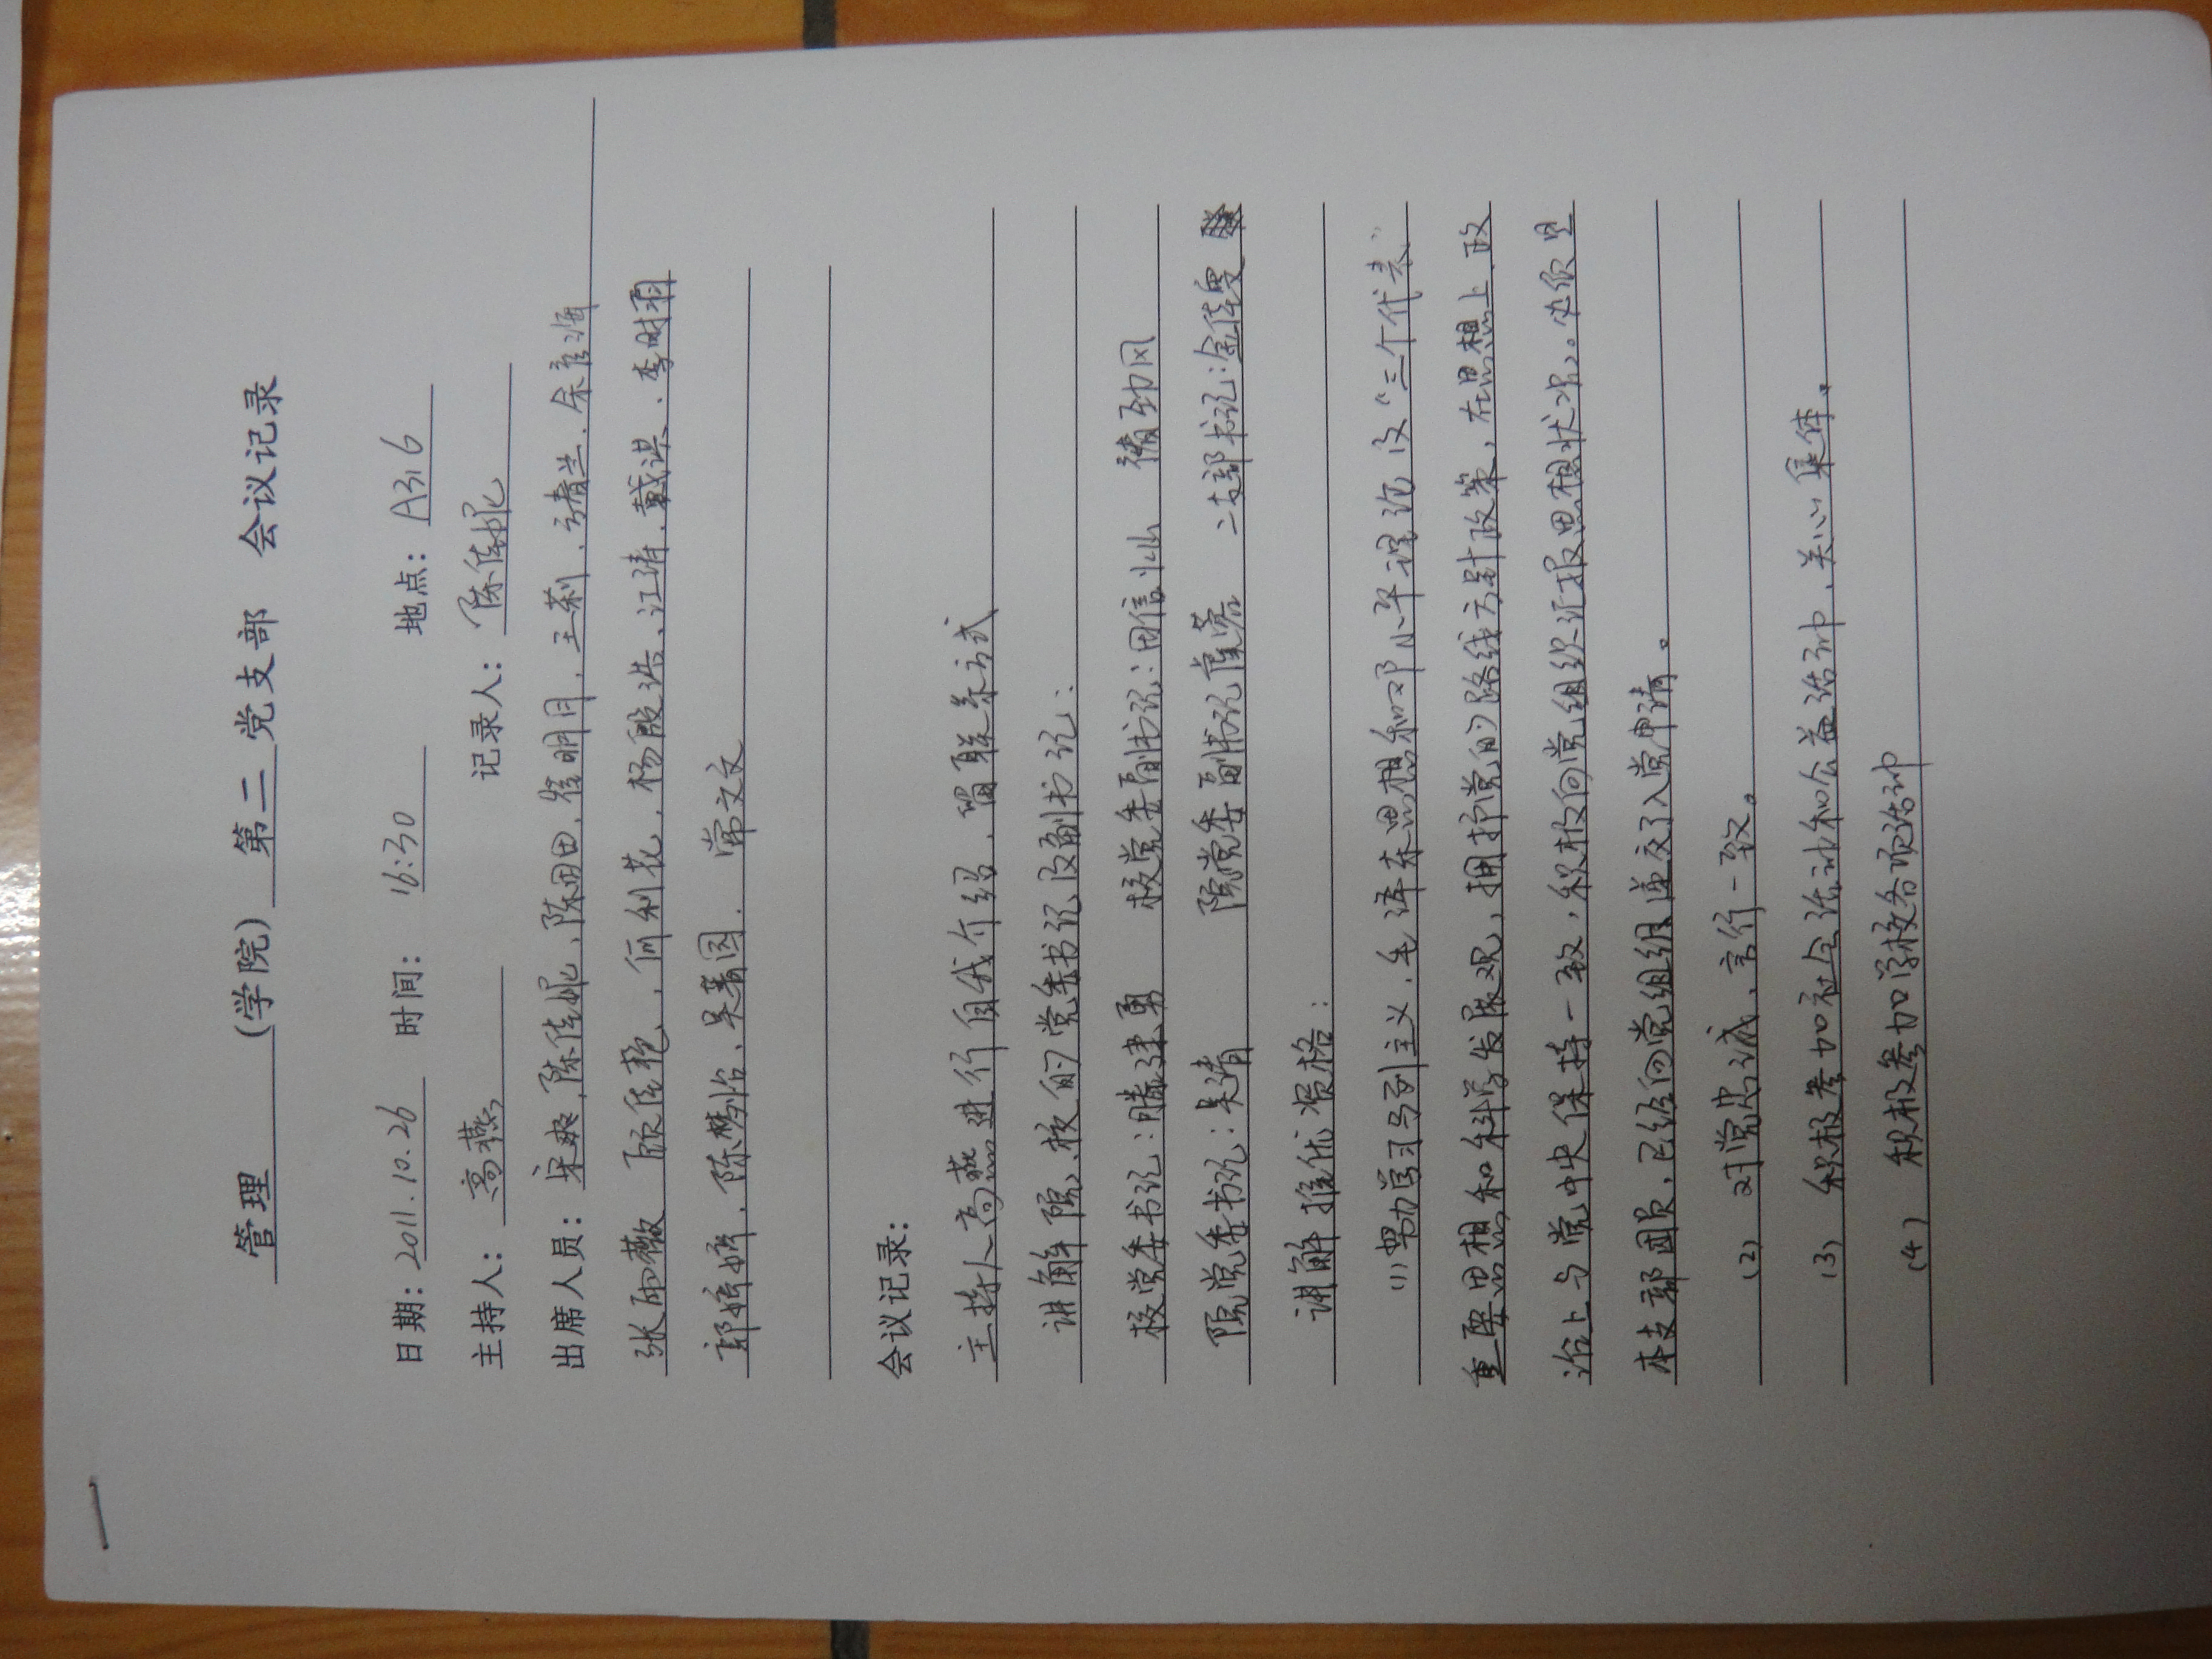 管理 (学院) 第二 党支部 会议记录
日期: 2011.10.26 时间: 16:30 地点: A316
主持人: 高燕 记录人: 陈佳妮
出席人员: 宋爽、陈佳妮、陈田田、崔明月、王莉、
张雨薇 欧佳艳、何利花、杨殷浩、江涛、戴谋、李时羽
郭婷婷、陈梦怡、吴茜园、常文文
会议记录:
主持人高燕进行自我介绍,留联系方式
讲解院、校的党委书记及副书记:
校党委书记:滕建勇 校党委副书记:田信灿 褚劲风
院党委书记:吴清 院党委副书记 二支部书记:
讲解推优资格:
(1)努力学习马列主义、毛泽东思想和邓小平理论及“三个代表”
重要思想和科学发展观,拥护党的路线方针政策,在思想上、政
治上与党中央保持一致,积极向党组织汇报思想状况。必须是
本支部团员,已经向党组织递交了入党申请。
(2) 对党忠诚、言行一致。
(3) 积极参加社会活动和公益活动,关心集体。
(4) 积极参加学校各项活动